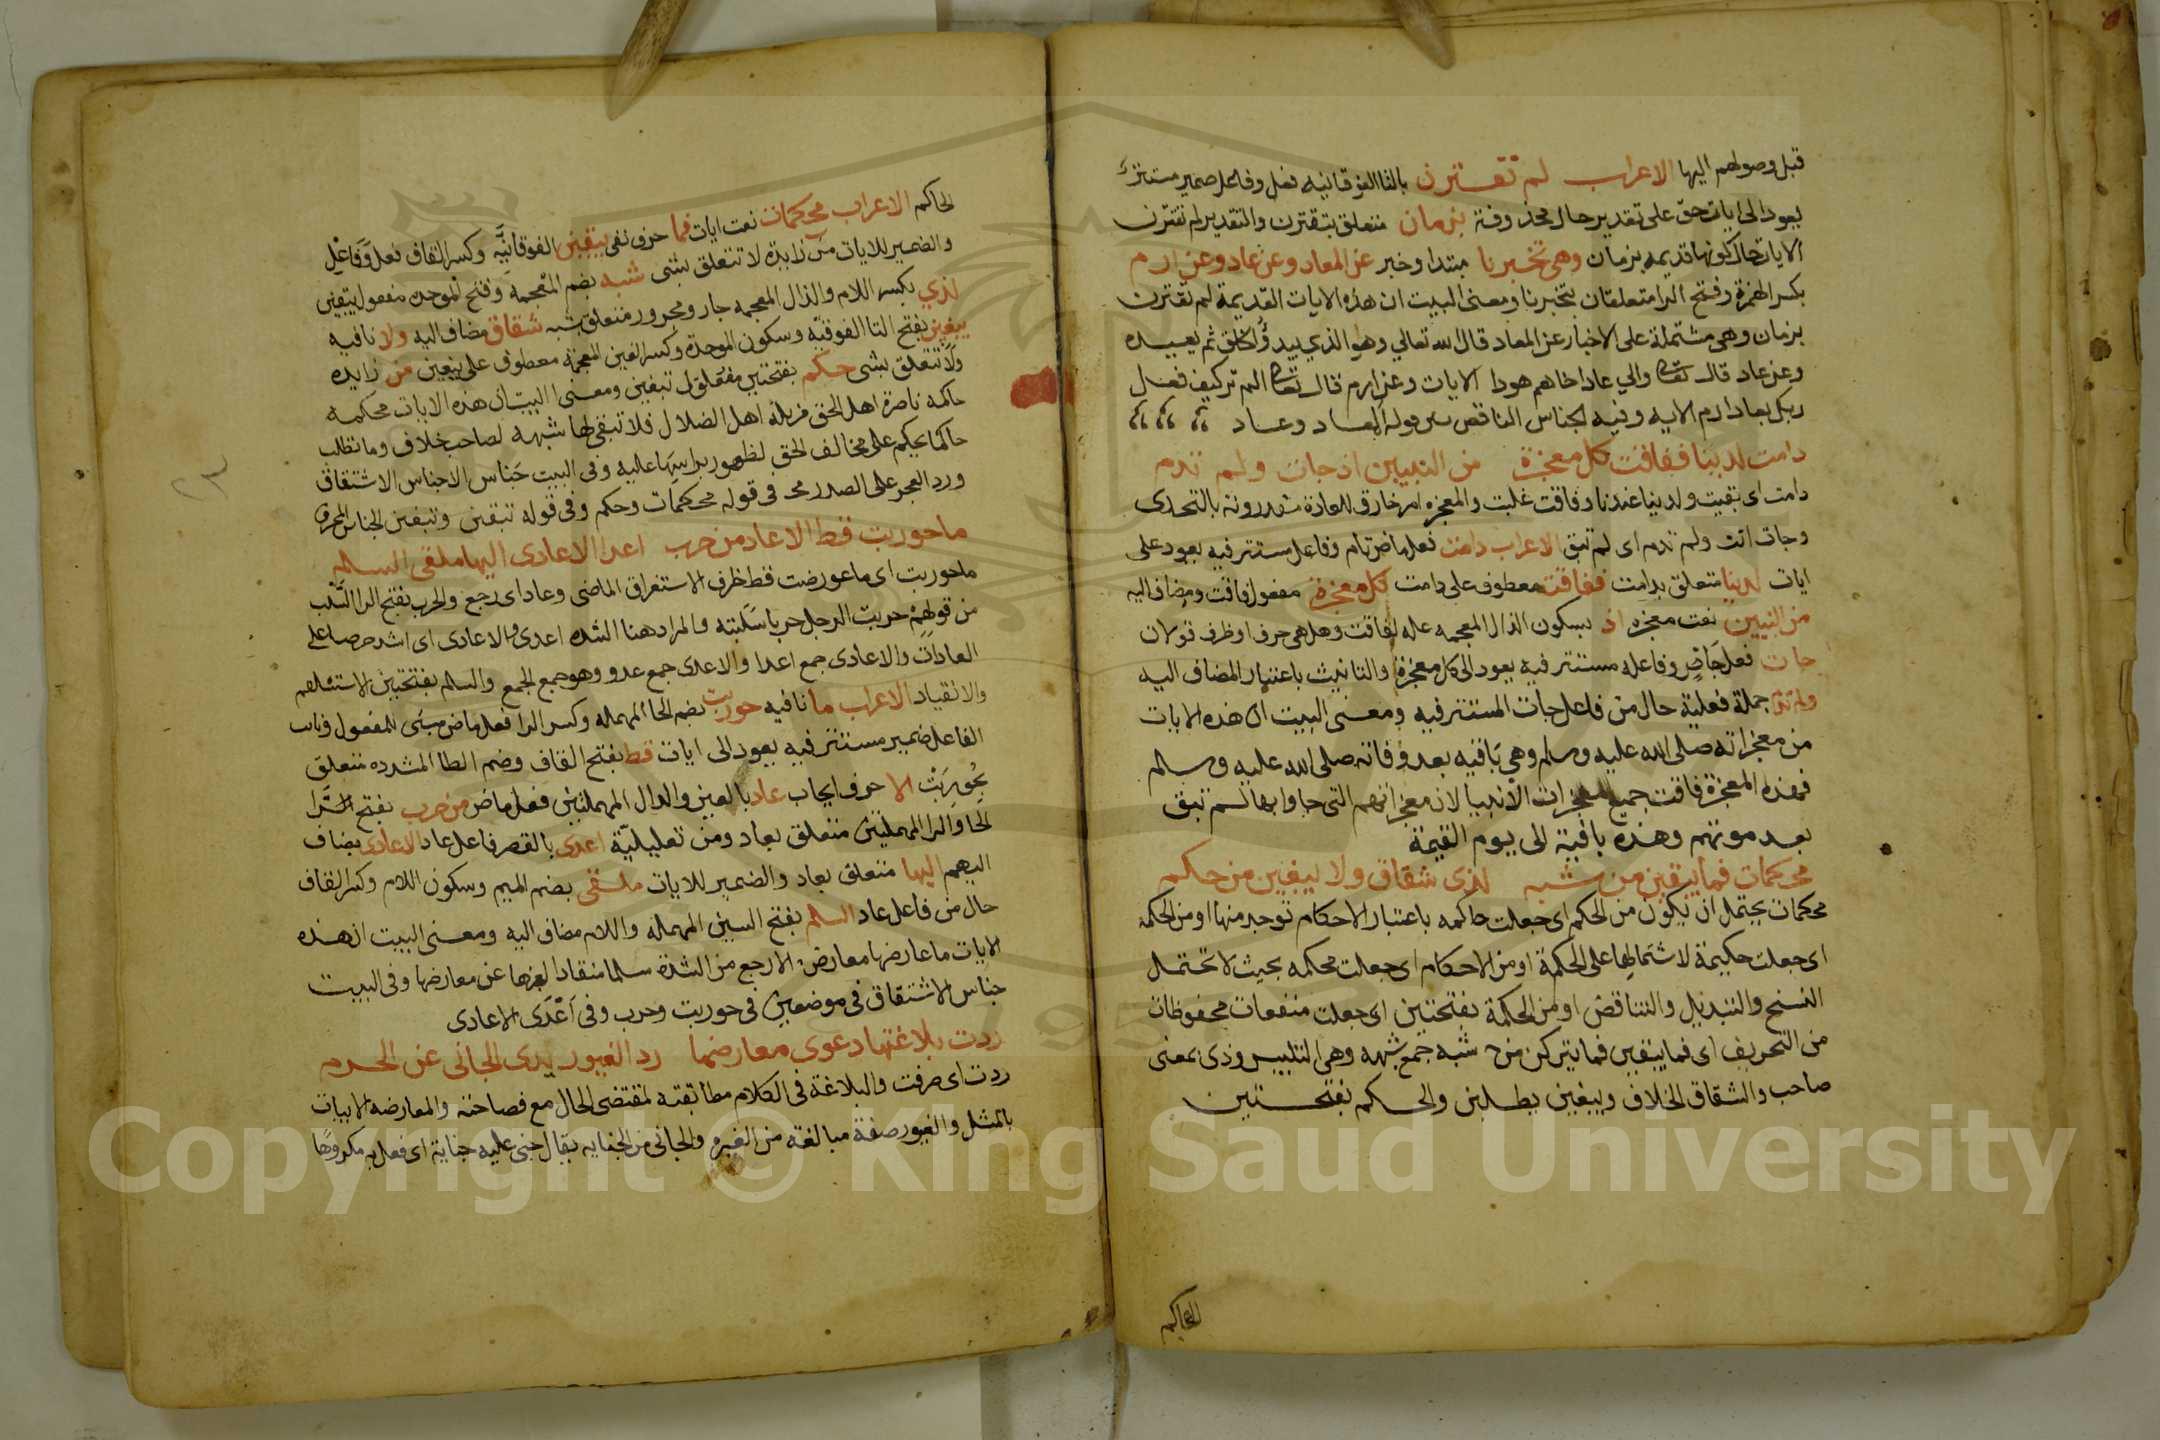 قبل وصولهم اليها الاعراب لم تقترن بالتا الفوقانيه فعل وفاعل ضمير مستتر
يعود الى ايات حق على تقدير حال محذوفة بزمان متعلق بتقترن والتقدير لم تقترن
الايات حال كونها قديمه بزمان وهي تخبرنا مبتدا وخبر عن المعاد وعن عاد وعن ارم
بكسر الهمزة وفتح الرا متعلقان بتخبرنا ومعنى البيت ان هذه الايات القديمة لم تقترن
بزمان وهي مشتملة على الاخبار عن المعاد قال الله تعالي وهو الذي يبدؤا الخلق ثم يعيده
وعن عاد قال تعالى والي عاد اخاهم هودا الايات وعن ارم قال تعالى الم تر كيف فعل
ربك بعاد ارم الايه وفيه الجناس الناقص بين المعاد وعاد
دامت لدينا ففاقت كل معجزة من النبيين اذ جات ولم تدم
دامت اى بقيت ولدينا عندنا وفاقت غلبت والمعجزه امر خارق للعادة مقرونة بالتحدى
وجات اتت ولم تدم اى لم تبق الاعراب دامت فعل ماض تام وفاعل مستتر فيه يعود على
ايات لدينا متعلق بدامت ففاقت معطوف على دامت كل معجزة مفعول فاقت ومضاف اليه
من النبيين نعت معجزه اذ بسكون الذال المعجمه عله لفاقت وهل هى حرف او ظرف قولان
جات فعل ماض وفاعله مستتر فيه يعود الى كل معجزة والتانيث باعتبار المضاف اليه
ولم تدم جملة فعلية حال من فاعل جات المستتر فيه ومعنى البيت ان هذه الايات
من معجزاته صلى الله عليه وسلم وهي باقيه بعد وفاته صلى الله عليه وسلم
فهذه المعجزة فاقت جميع معجزات الانبيا لان معجزاتهم التى جاوا بها لم تبق
بعد موتهم وهذه باقية الى يوم القيمة
محكمات فما يبقين من شبه لذى شقاق ولا يبغين من حكم
محكمات يحتمل ان يكون من الحكم اى جعلت حاكمه باعتبار الاحكام توجد منها او من الحكمة
اى جعلت حكيمة لاشتمالها على الحكمة او من الاحكام اى جعلت محكمه بحيث لا تحتمل
النسخ والتبديل والتناقض او من الحكمة بفتحتين اى جعلت متقعات محفوظات
من التحريف اى فما يبقين فما يتركن من شبه جمع شبهه وهي التلبيس وذى بمعنى
صاحب والشقاق الخلاف ويبغين يطلبن والحكم بفتحتين
الحاكم
الحاكم الاعراب محكمات نعت ايات فما حرف نفى يبقين الفوقانيه وكسر القاف فعل وفاعل
والضمير للايات من زايدة لا تتعلق بشى شبه بضم المعجمه وفتح الموحده مفعول يبقين
لذي بكسر اللام والذال المعجمه جار ومجرور متعلق بشبه شقاق مضاف اليه ولا نافيه
يبغين بفتح التا الفوقيه وسكون الموحدة وكسر الغين المعجمة معطوف على يبقين من زايده
ولا تتعلق بشى حكم بفتحتين مفعول تبغين ومعنى البيت ان هذه الايات محكمه
حاكمه ناصرة اهل الحق مزيلة اهل الضلال فلا تبقى لها شبهه لصاحب خلاف وما تطلب
حاكما يحكم على مخالف الحق لظهور براهينها عليه وفى البيت جناس الاجناس الاشتقاق
ورد العجز على الصدر فى قوله محكمات وحكم وفى قوله تبقين وتبغين الجناس المحرف
ما حوربت قط الا عاد من حرب اعدا الاعادى اليها ملقى السلم
ما حوربت اى ما عورضت قط ظرف لاستغراق الماضى وعاد اى رجع والحرب بفتح الرا السلب
من قولهم حربت الرجل حربا سلبته والمراد هنا الشده اعدى والاعادى اى اشد حرصا على
العادات والاعادى جمع اعدا والاعدى جمع عدو وهو جمع الجمع والسلم بفتحتين الاستسلام
والانقياد الاعراب ما نافيه حوربت بضم الحا المهمله وكسر الرا فعل ماض مبنى للمفعول ونايب
الفاعل ضمير مستتر فيه يعود الى ايات قط بفتح القاف وضم الطا المشدده متعلق
بحوربت الا حرف ايجاب عاد بالعين والدال المهملتين فعل ماض من حرب بفتح الرا
الحا والرا المهملتين متعلق بعاد ومن تعليلية اعدى بالقصر فاعل عاد الاعادى بضاف
اليهم اليها متعلق بعاد والضمير للايات ملقى بضم الميم وسكون اللام وكسر القاف
حال من فاعل عاد السلم بفتح السين المهمله واللام مضاف اليه ومعنى البيت ان هذه
الايات ما عارضها معارض الا رجع من الشدة سلما منقادا لعجزها عن معارضها وفى البيت
جناس الاشتقاق فى موضعين فى حوربت وحرب وفى اعدى الاعادى
ردت بلاغتها دعوى معارضها رد الغيور يدى الجانى عن الحرم
ردت اى صرفت والبلاغة فى الكلام مطابقته لمقتضى الحال مع فصاحته والمعارضه الاتيان
بالمثل والغيور صفة مبالغه من الغيره والجانى من الجنايه يقال جنى عليه جناية اى فعل به مكروها
Copyright © King Saud University